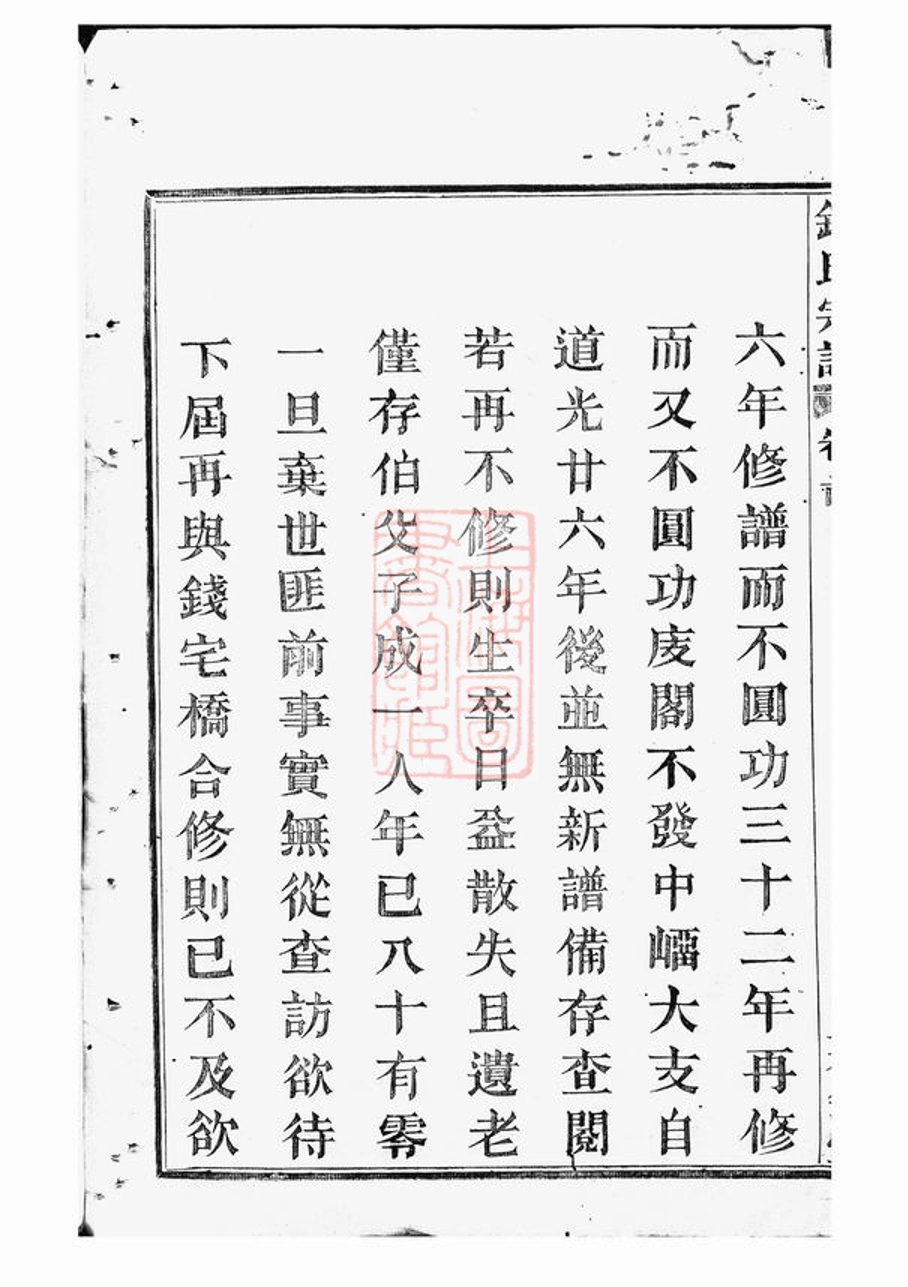 六年修譜而不圓功三十二年再修
而又不圓功庋閣不發中嵋大支自
道光廿六年後並無新譜備存查閱
若再不修則生卒日益散失且遺老
僅存伯父子成一人年已八十有零
一旦棄世匪前事實無從查訪欲待
下屆再與錢宅橋合修則已不及欲
上海圖
書館姬